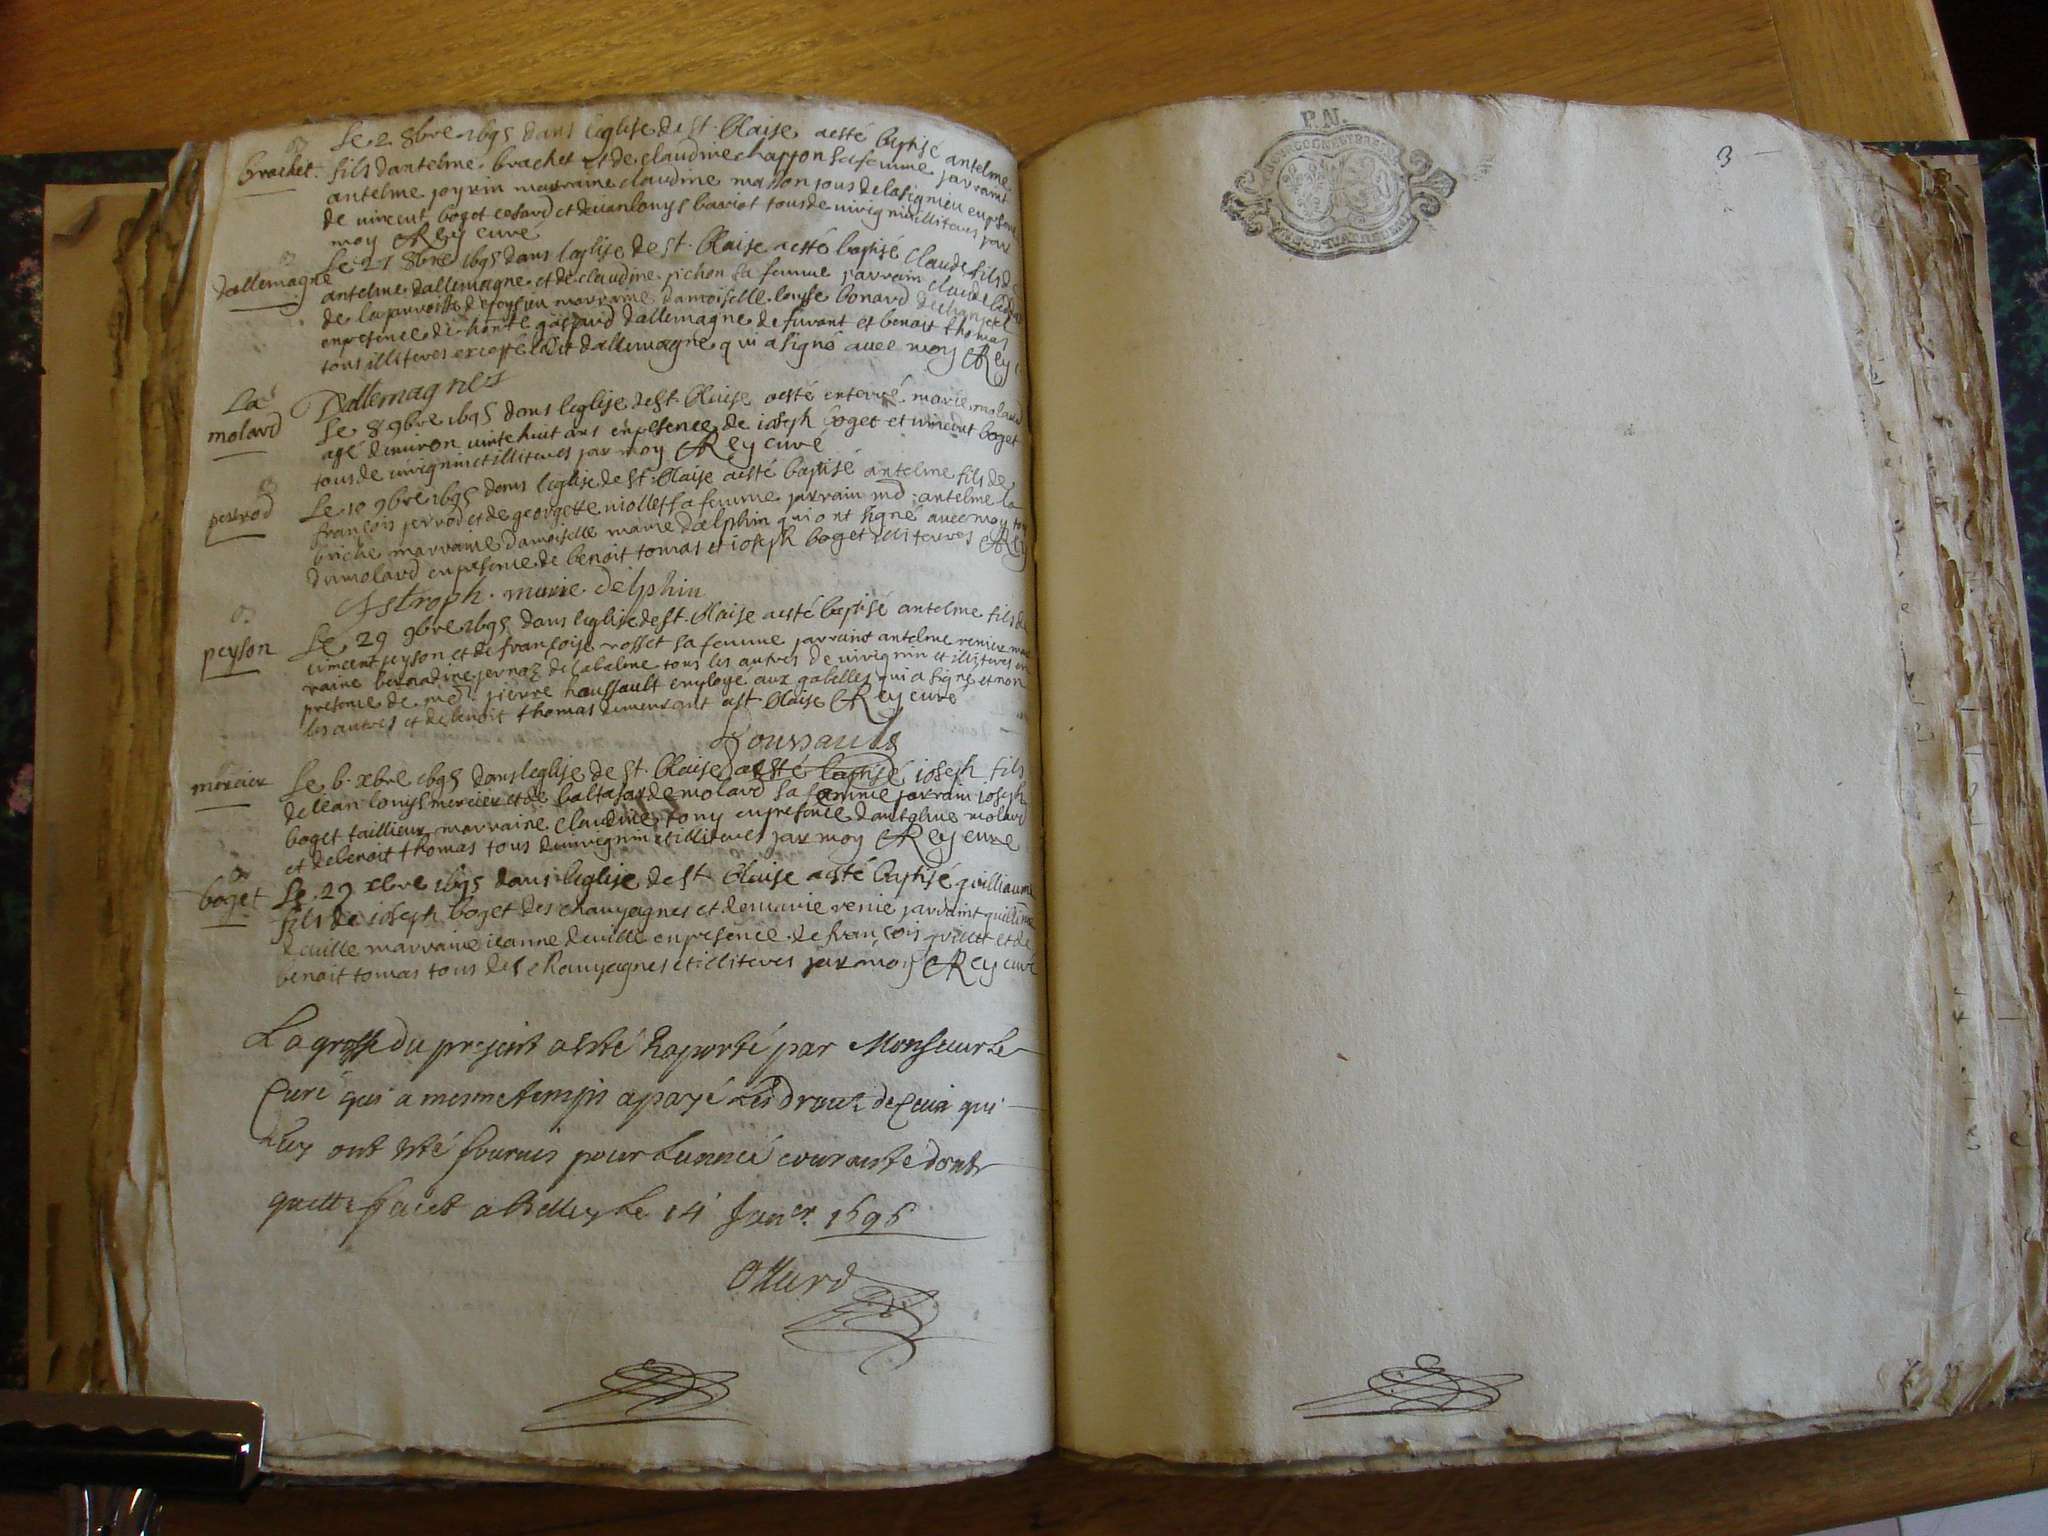 Le 2 8bre 1695 dans leglise de St. Blaise aesté baptisé antelme
brachet. fils dantelme brachet et de claudine chappon sa femme parrain
antelme joyrin marraine claudine masson tous de en psence
de vincent boget et de louys tous de virignin illiteres par
moy Rey curé
Le 21 8bre 1695 dans leglise de St. Blaise aesté baptisé Claude fils de
dallemagne antelme dallemagne et de claudine pichon sa femme parrain claude
de la parroisse de marraine damoiselle louyse bonard
en presence de gaspard dallemagne de furant et benoit thomas
tous illiteres excepté ledit dallemagne qui a signé avec moy Rey
Dallemagne
La
molard Le 8 9bre 1695 dans leglise de St. Blaise aesté enterré marie molard
agé denviron vinte huit ans en psence de ioseph boget et vincent boget
tous de virignin et illiteres par moy Rey curé
perrod Le 10 9bre 1695 dans leglise de St. Blaise aesté baptisé antelme fils de
françois perrod et de georgette niollet sa femme parrain md. antelme la
briche marraine damoiselle marie dalphin qui ont signé avec moy
du molard en psence de benoit tomas et ioseph boget illiteres Rey
marie delphin
peyson Le 29 9bre 1695 dans leglise de St. Blaise aesté baptisé antelme fils de
vincent peyson et de françoise rosset sa femme parraint antelme renier mar
raine bernardine pernaz de labalme tous les autres de virignin et illiteres en
presence de md. pierre haussault employe aux gabelles qui a signé et non
les autres et de benoit thomas demeurant a St. Blaise Rey curé
mercier Le 6. xbre 1695 dans leglise de St. Blaise aesté baptisé ioseph fils
de iean louys mercier et de baltasarde molard sa femme parrain ioseph
boget taillieur marraine claudine tony en presence dantelme molard
et de benoit thomas tous de virignin et illiteres par moy Rey curé
boget Le 29 xbre 1695 dans leglise de St. Blaise aesté baptisé guilliaume
fils de ioseph boget des champagnes et de marie renie parraint guillime
deville marraine ieanne deville en presence de françois et de
benoit tomas tous des champagnes et illiteres par moy Rey curé
La grosse du present a esté raporté par Monsieur Le
Curé qui a mesme temps a payé Les droits de Ceux qui
Luy ont esté fournis pour Lannée courante dont
quitte faict a Belley Le 14 Janer. 1696
P.N.
3